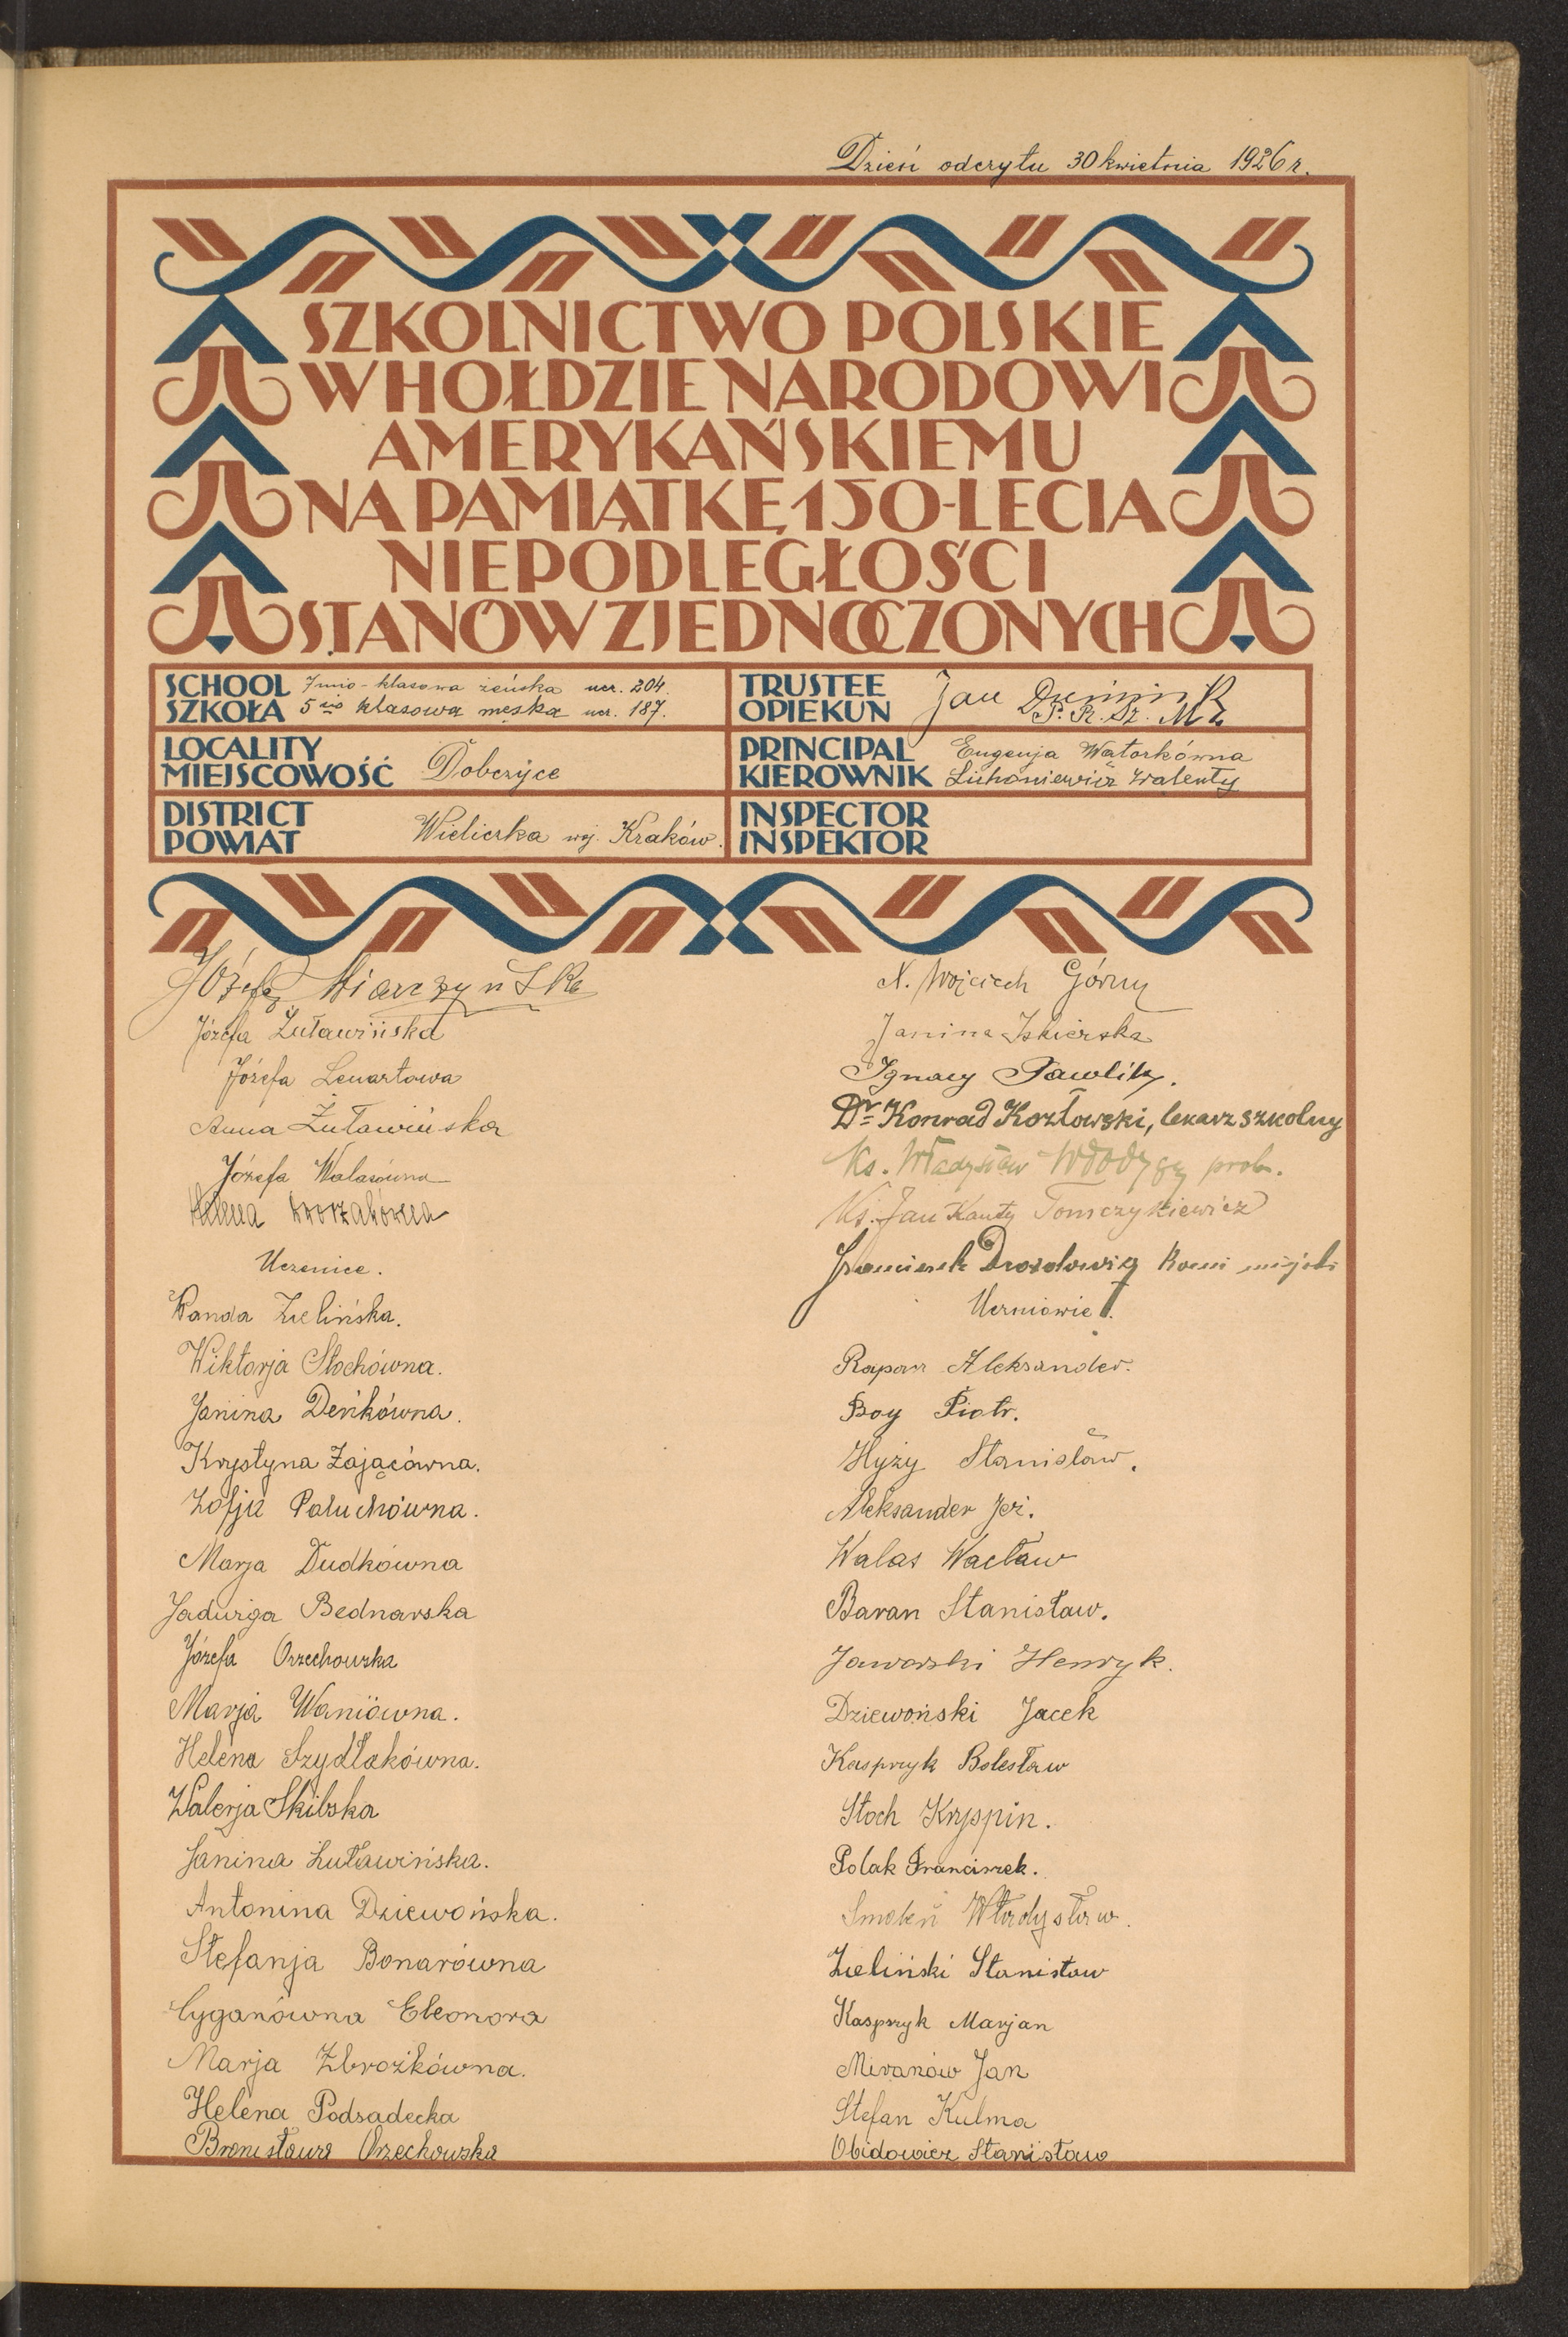 Dzień odczytu 30 kwietnia 1926 r.
SZKOLNICTWO POLSKIE
W HOŁDZIE NARODOWI
AMERYKAŃSKIEMU
NA PAMIĄTKĘ 150-LECIA
NIEPODLEGŁOŚCI
STANÓW ZJEDNOCZONYCH
SCHOOL 7mio-klasowa żeńska ucz. 204.
SZKOŁA 5cio klasowa męska ucz. 187.
TRUSTEE
OPIEKUN Jan
P. R. Sz. M.
LOCALITY
MIEJSCOWOŚĆ Dobczyce
PRINCIPAL Eugenja Wątorkówna
KIEROWNIK Lichoniewicz Walenty
DISTRICT
POWIAT Wieliczka woj. Kraków.
INSPECTOR
INSPEKTOR
Józefa
Józefa Żuławińska
Józefa Lenartowa
Anna Żuławińska
Józefa Walasówna
Uczenice.
Wanda Zielińska.
Wiktorja Stochówna.
Janina Deńkówna.
Krystyna Zającówna.
Zofja Paluchówna.
Marja Dudkówna
Jadwiga Bednarska
Józefa Orzechowska
Marja Waniówna.
Helena Szydłakówna.
Walerja Skibska
Janina Żuławińska.
Antonina Dziewońska.
Stefanja Bonarówna
Cyganówna Eleonora
Marja Zbrożkówna.
Helena Podsadecka
Bronisława Orzechowska
X. Wojciech Górny
Janina Iskierska
Ignacy Pawlik.
Dr Konrad Kozłowski, lekarz szkolny
Ks. Władysław Włodyga prob.
Ks. Jan Kanty Tomczykiewicz
Franciszek Drozdowicz
Uczniowie.
Rapacz Aleksander.
Boy Piotr.
Hyży Stanisław.
Aleksander Jeż.
Walas Wacław
Baran Stanisław.
Jaworski Henryk.
Dziewoński Jacek
Kasprzyk Bolesław
Stoch Kryspin.
Polak Franciszek.
Smoleń Władysław.
Zieliński Stanisław
Kasprzyk Marjan
Miranów Jan
Stefan Kulma
Obidowicz Stanisław